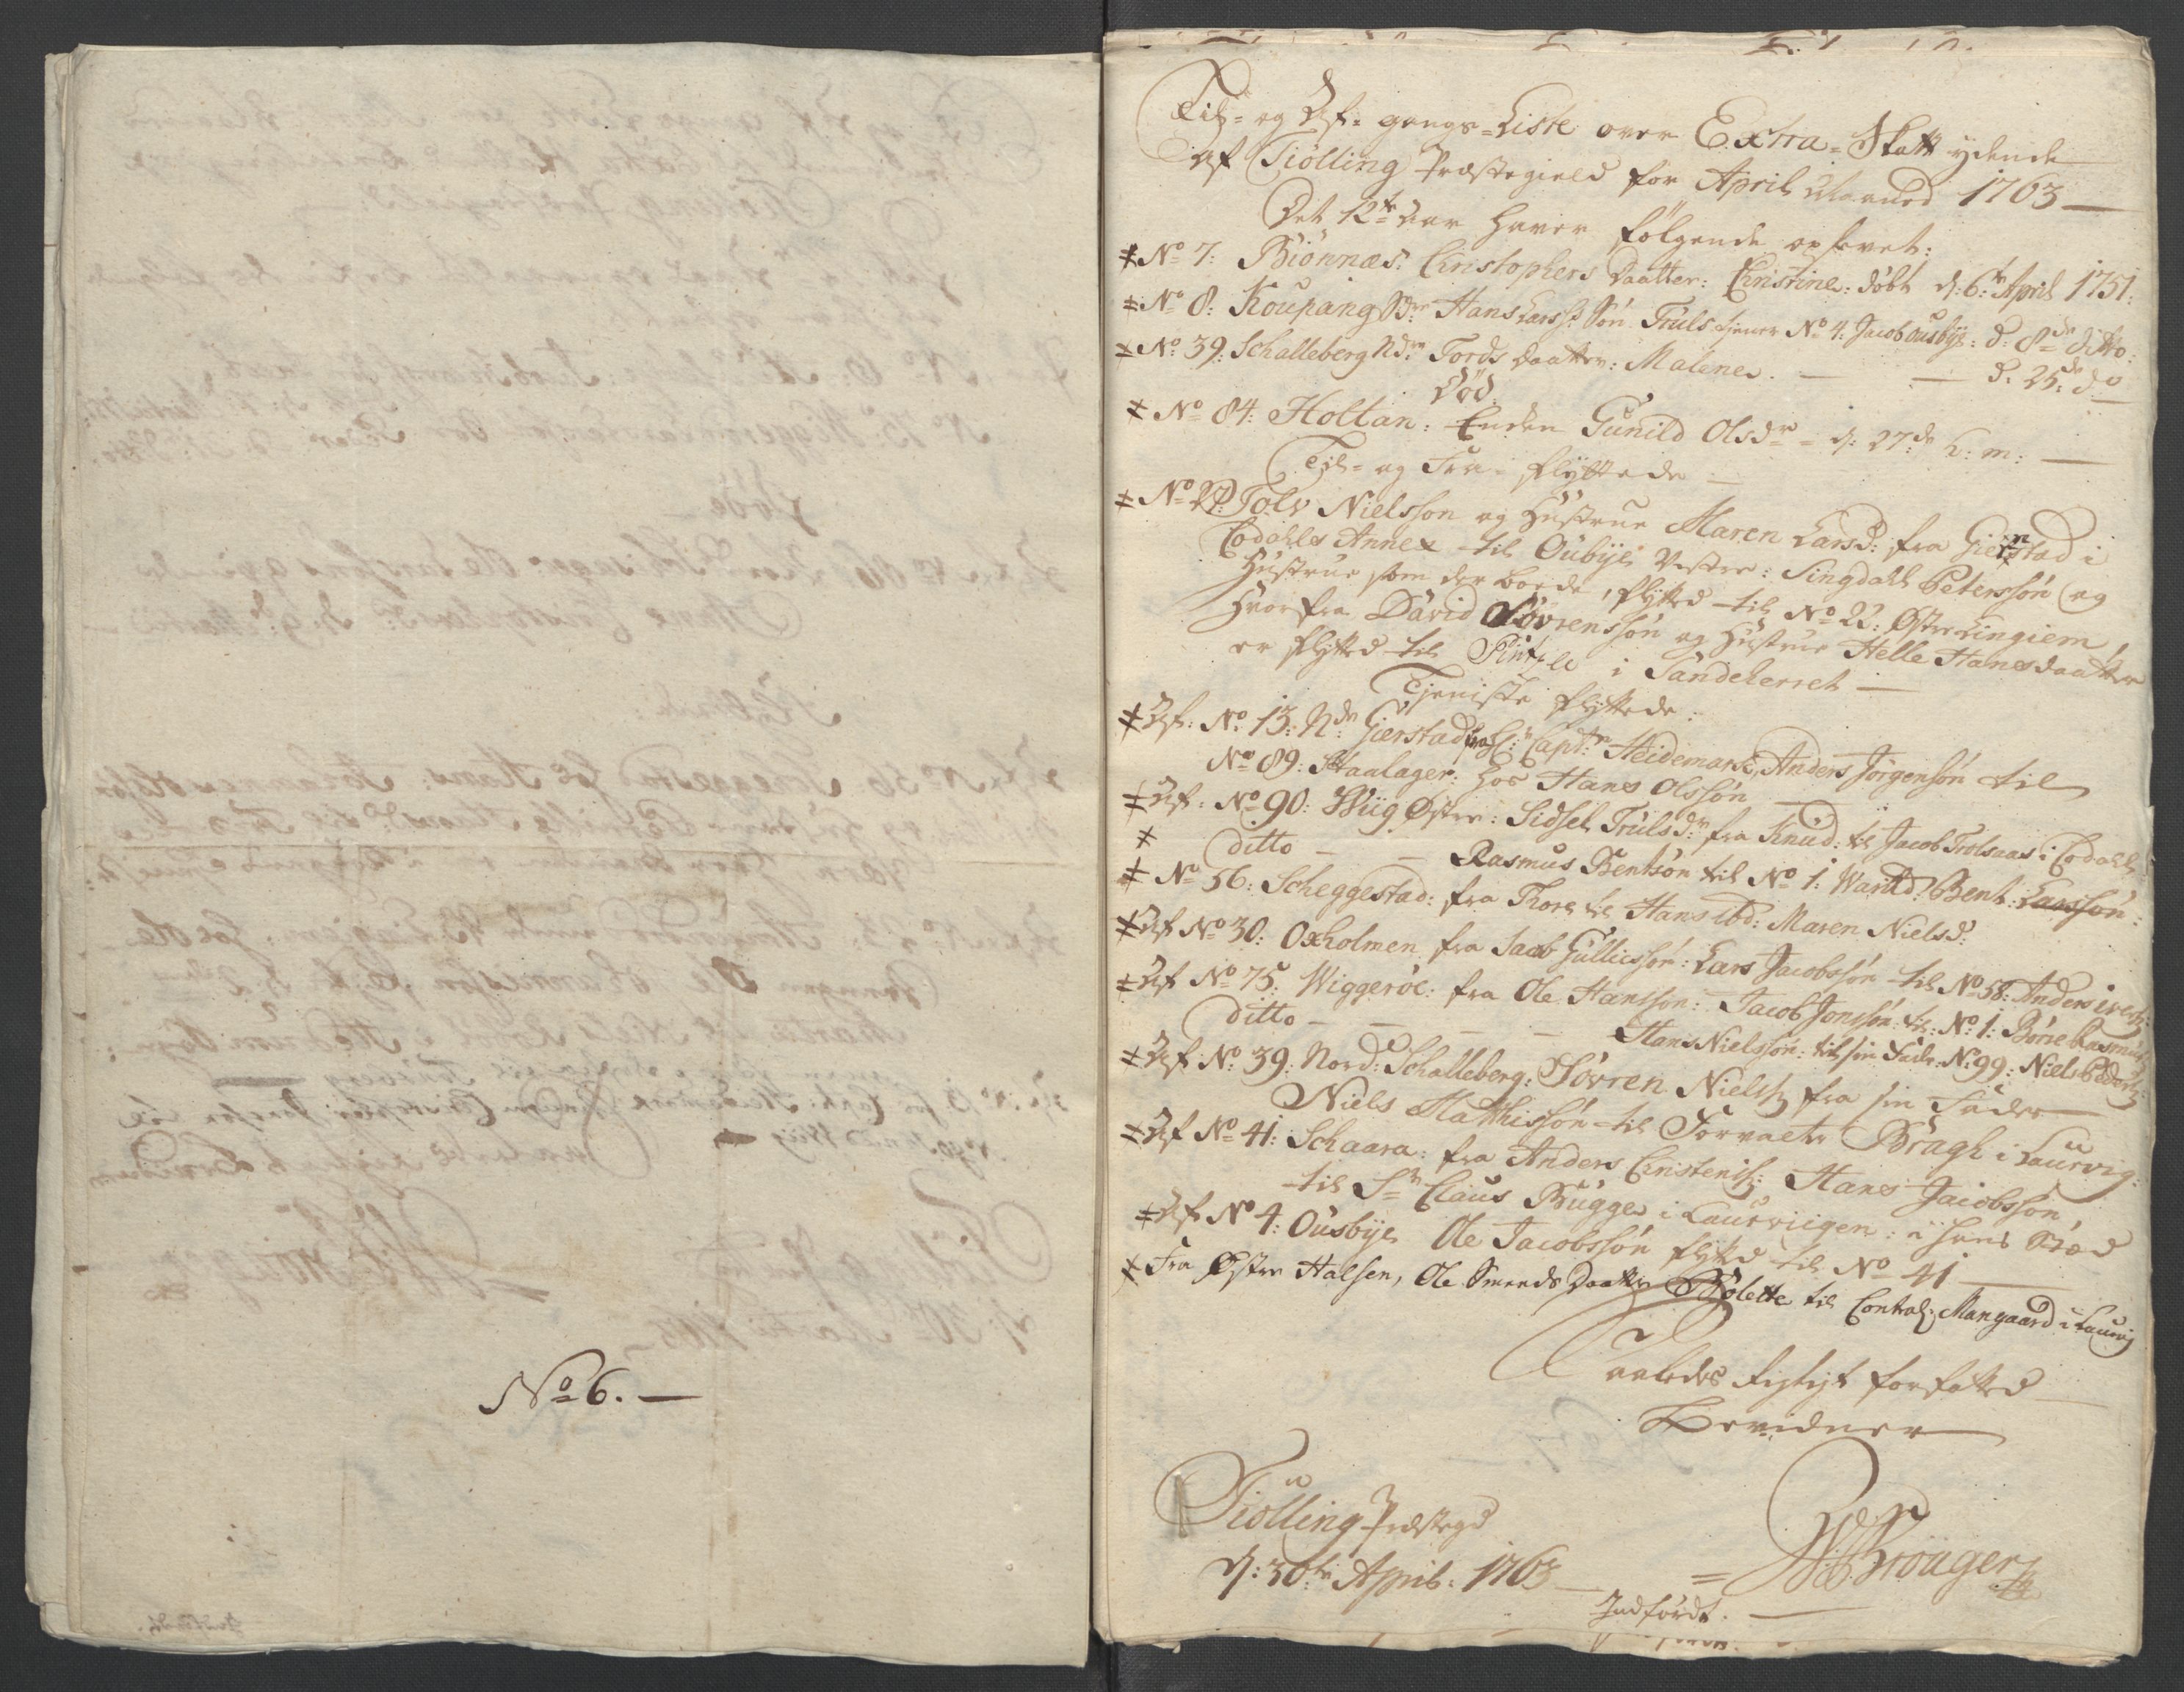 No 6. —
Til- og Af- gangs-Liste over Extra-Skatt ydende
af Tiølling Præstegield for April Maaned 1763 —
Det 12te Aar haver følgende opfyldt:
No 7: Biønnæs: Christophers Daatter: Christine: døbt d: 6te April 1751:
No 8: Koupang Hans Larss: Søn Truls tiener No 4: Jacob Ousbye: d: 8de ditto:
No 39: Schalleberg Ndre Tords Daatter: Malene. — — d: 25de do —
Død.
No 84: Holtan: Enken Gunild Olsdr = d: 27de h: m: —
Til- og Fra- flyttede —
No 27: Tolv Nielssøn og Hustrue Maren Larsd: fra Gierstad i
Lodahls Annex til Oubye Vestre: Singdahl Peterssøn (og
Hustrue som der boede, flytted til No 23: Østre Lingiem,
hvorfra David Søvrenssøn og Hustrue Helle Hansdaatter
er flytted til i Sandeherret —
Tieniste flyttede:
Af: No 13: Ndre Gierstad fra Hr: Captn Heidemark, Anders Jørgensøn til
No 89: Haalager: hos Hans Olssøn —
Af: No 90: Wiig Østre: Sidsel Trulsdr fra Knud: til Jacob Trolsaas i Lodahl:
ditto — — Rasmus Bentsøn til No 1: Bent: Larssøn:
No 56: Scheggestad: fra Thore til Hans ibd: Maren Nielsd:
Af No 30: Oxholmen fra Jacob Gullicssøn: Lars Jacobssøn til No 58: Anders
Af No 75: Wiggerøe: fra Ole Hanssøn: Jacob Jonssøn til: No 1: Børre Rasmuss:
ditto — — — — Hans Nielssøn: til sin Fader No 99: Niels Peders:
Af No 39: Nord: Schalleberg: Søvren Nielss: fra sin Fader
Niels Matthissøn til Forvalter Bragh i Laurvig:
Af No 41: Schaara: fra Anders Christenss: Hans Jacobssøn,
til Sr Claus Bugge i Laurviigen: i hans Stæd
Af No 4: Ousbye Ole Jacobssøn flytted til No 41 —
Fra Østre Halsen, Ole Smeds Daatter Bolette til Contol: Mangaard i Laurvig
Saaledes rigtigt forfatted
bevidner
Tiølling Præstegd
d: 30te April: 1763 —
Indført. —